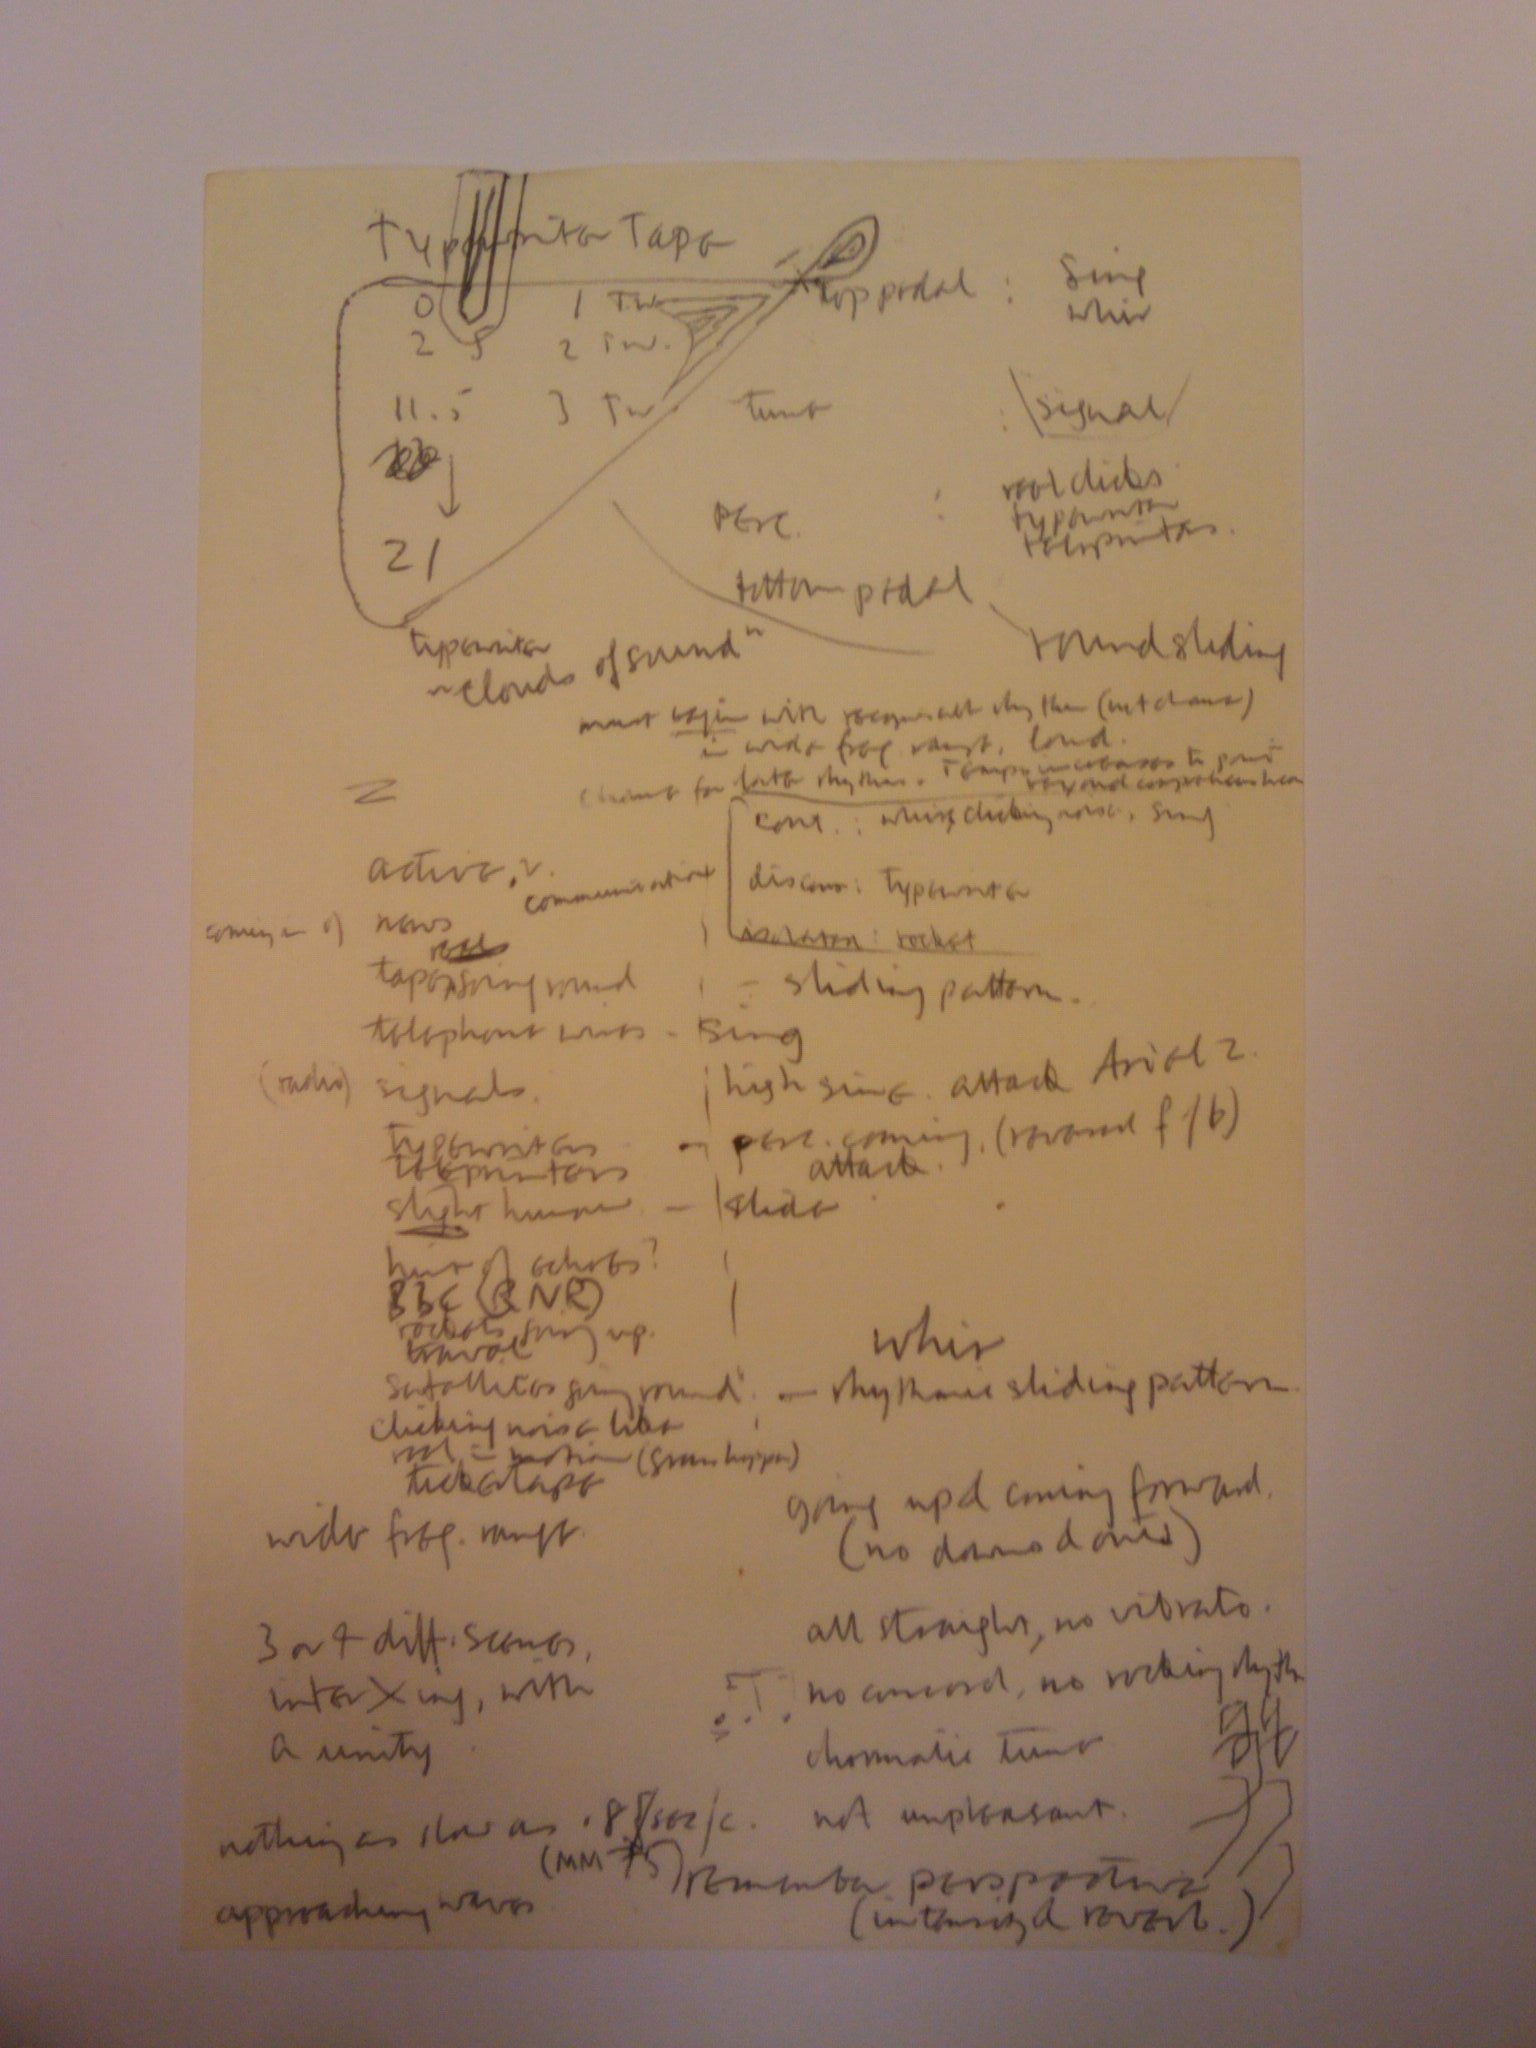 Typewriter Tape
0 1 TW
2 5 2 TW.
11.5 3 TW
21
top pedal : Sing
whir
tune : signal
perc. : reel clicks
typewriter
teleprinters.
bottom pedal round sliding
typewriter
"clouds of sound"
must begin with recognisable rhythm (not chance)
in wide freq. range, loud.
chance for later rhythm. Tempo increases to point
beyond comprehension
cont. : whirs, clicking noise, sing
active, v.
communication
discon: typewriter
coming in of news
isolated : rocket
tapes going round - sliding pattern.
telephone wires - sing
(radio) signals. high sine. attack Ariel 2.
typewriters - perc. coming, (reversed f/b)
teleprinters attack.
slight human - slide
hint of echoes?
BBC (RNR)
rockets going up.
travel
whir
satellites going round - rhythmic sliding pattern
clicking noise like
reel = motion (grasshopper)
tickertape
wide freq. range.
going up & coming forward.
(no down & over)
3 or 4 diff. scenes,
inter X ing, with
a unity
all straight, no vibrato.
no concord, no rocking rhythm
chromatic tune
nothing as slow as .8/sec/c. not unpleasant.
(MM 75)
remember perspective
approaching waves
(intensity & reverb.)